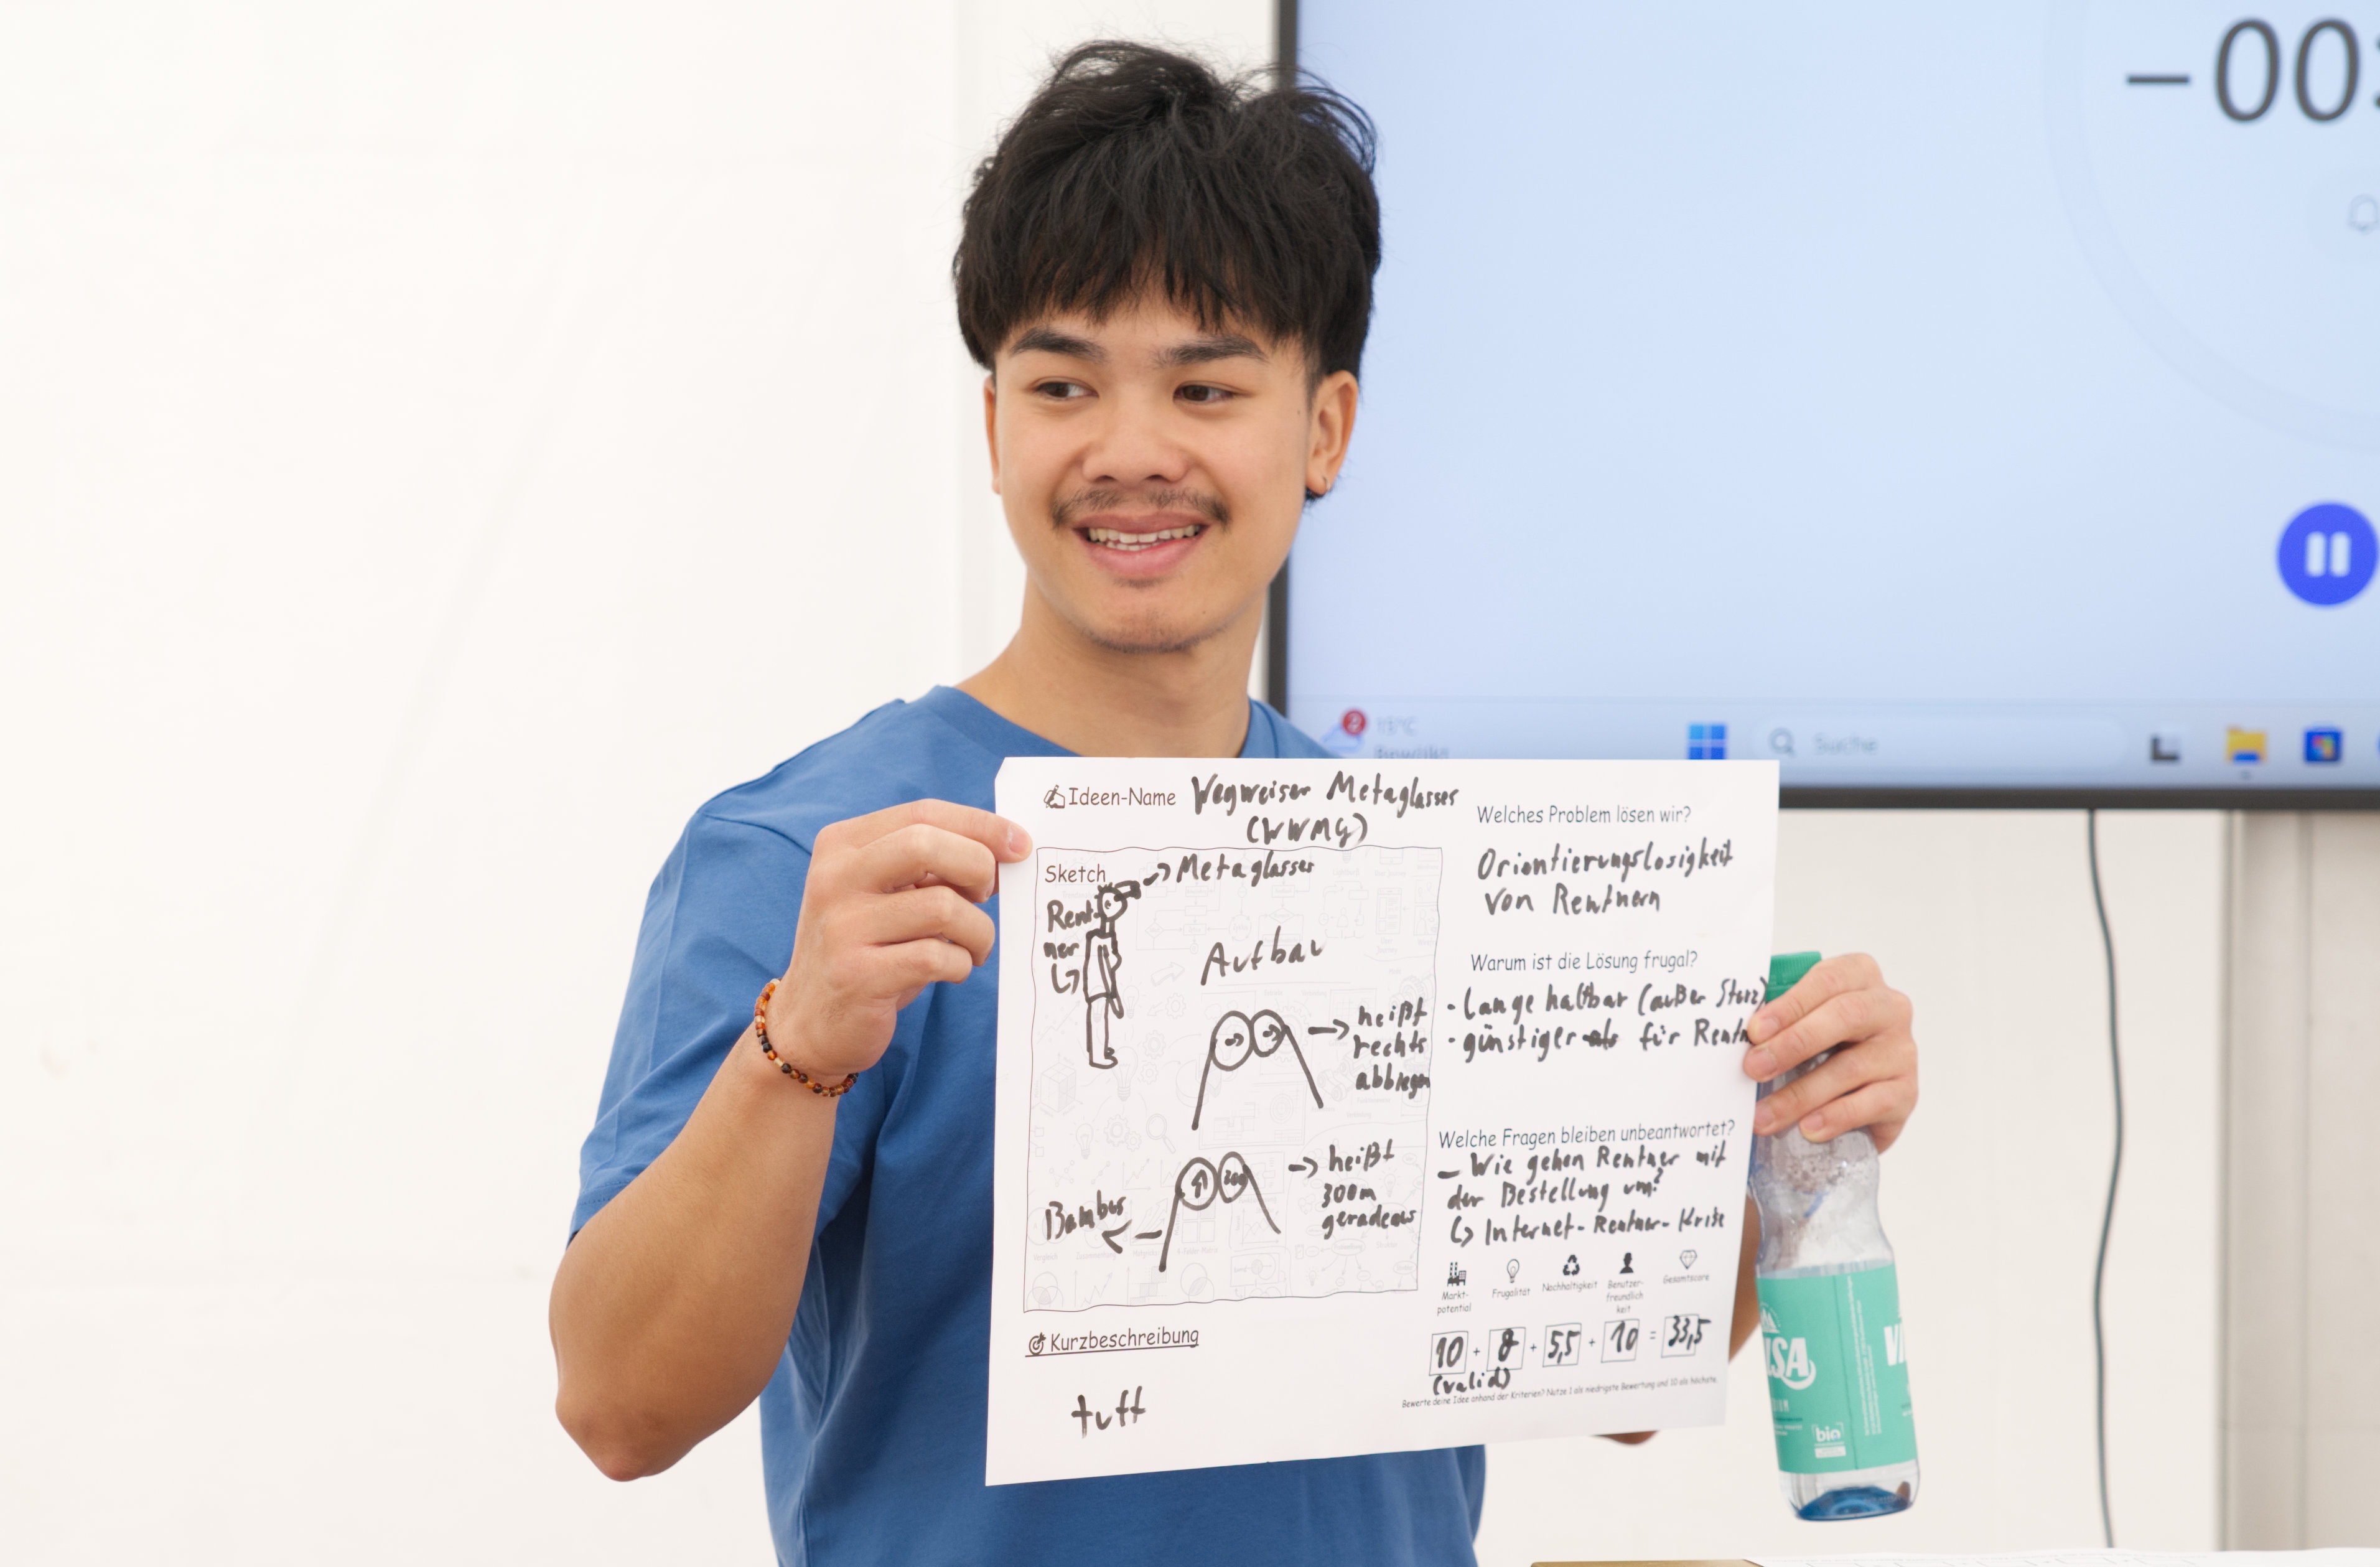 -00:
2
15°C
Bewölkt
Suche
Ideen-Name Wegweiser Metaglasser
(WWMG)
Sketch
-> Metaglasser
Rent-
ner
Aufbau
-> heißt
rechts
abbiegen
-> heißt
300m
geradeaus
300
Bambus
Kurzbeschreibung
tuff
Welches Problem lösen wir?
Orientierungslosigkeit
von Rentnern
Warum ist die Lösung frugal?
- Lange haltbar (außer Sturz)
- günstiger als für Rentn
Welche Fragen bleiben unbeantwortet?
- Wie gehen Rentner mit
der Bestellung um?
Internet-Rentner-Krise
Markt-
potential
Frugalität
Nachhaltigkeit
Benutzer-
freundlich
keit
Gesamtscore
10 + 8 + 5,5 + 10 = 33,5
(valid)
Bewerte deine Idee anhand der Kriterien? Nutze 1 als niedrigste Bewertung und 10 als höchste.
LSA
Vi
bio